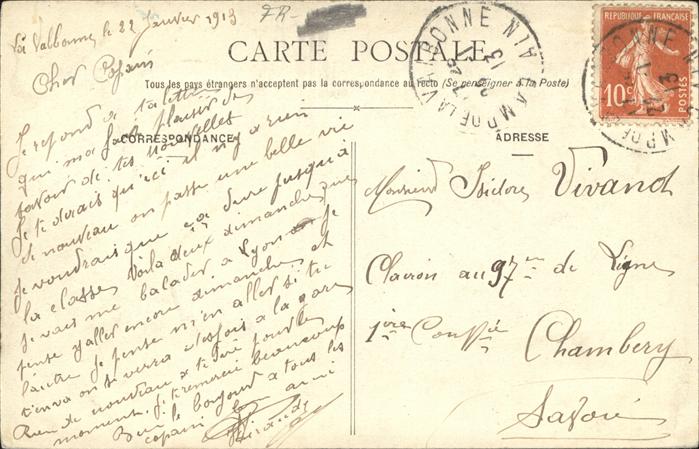 La Valbonne le 22 Janvier 1913
FR-
CARTE POSTALE
Tous les pays étrangers n'acceptent pas la correspondance au recto (Se renseigner à la Poste)
CORRESPONDANCE
ADRESSE
Cher Copain
Je repond à ta lettre
qui ma fait plaisir de
savoir de tes nouvelles
Je te dirais qu'ici il ny a rien
de nouveau on passe une belle vie
je voudrais que ça dure jusqu'a
la classe. Voila deux dimanches que
je vais me balader a Lyon je
pense y aller encore dimanche et
l'autre je pense m'en aller si tu
t'en va on si verra a la gare
Rien de nouveau a te dire pour le
moment. Je remercie beaucoup
Bien le bonjour a tous les
copains
ami
Monsieur Isidore Vivand
Clairon au 97em de Ligne
1ère Compie
Chambery
Savoie
REPUBLIQUE FRANÇAISE
10c
POSTES
CAMP DE LA VALBONNE AIN
13